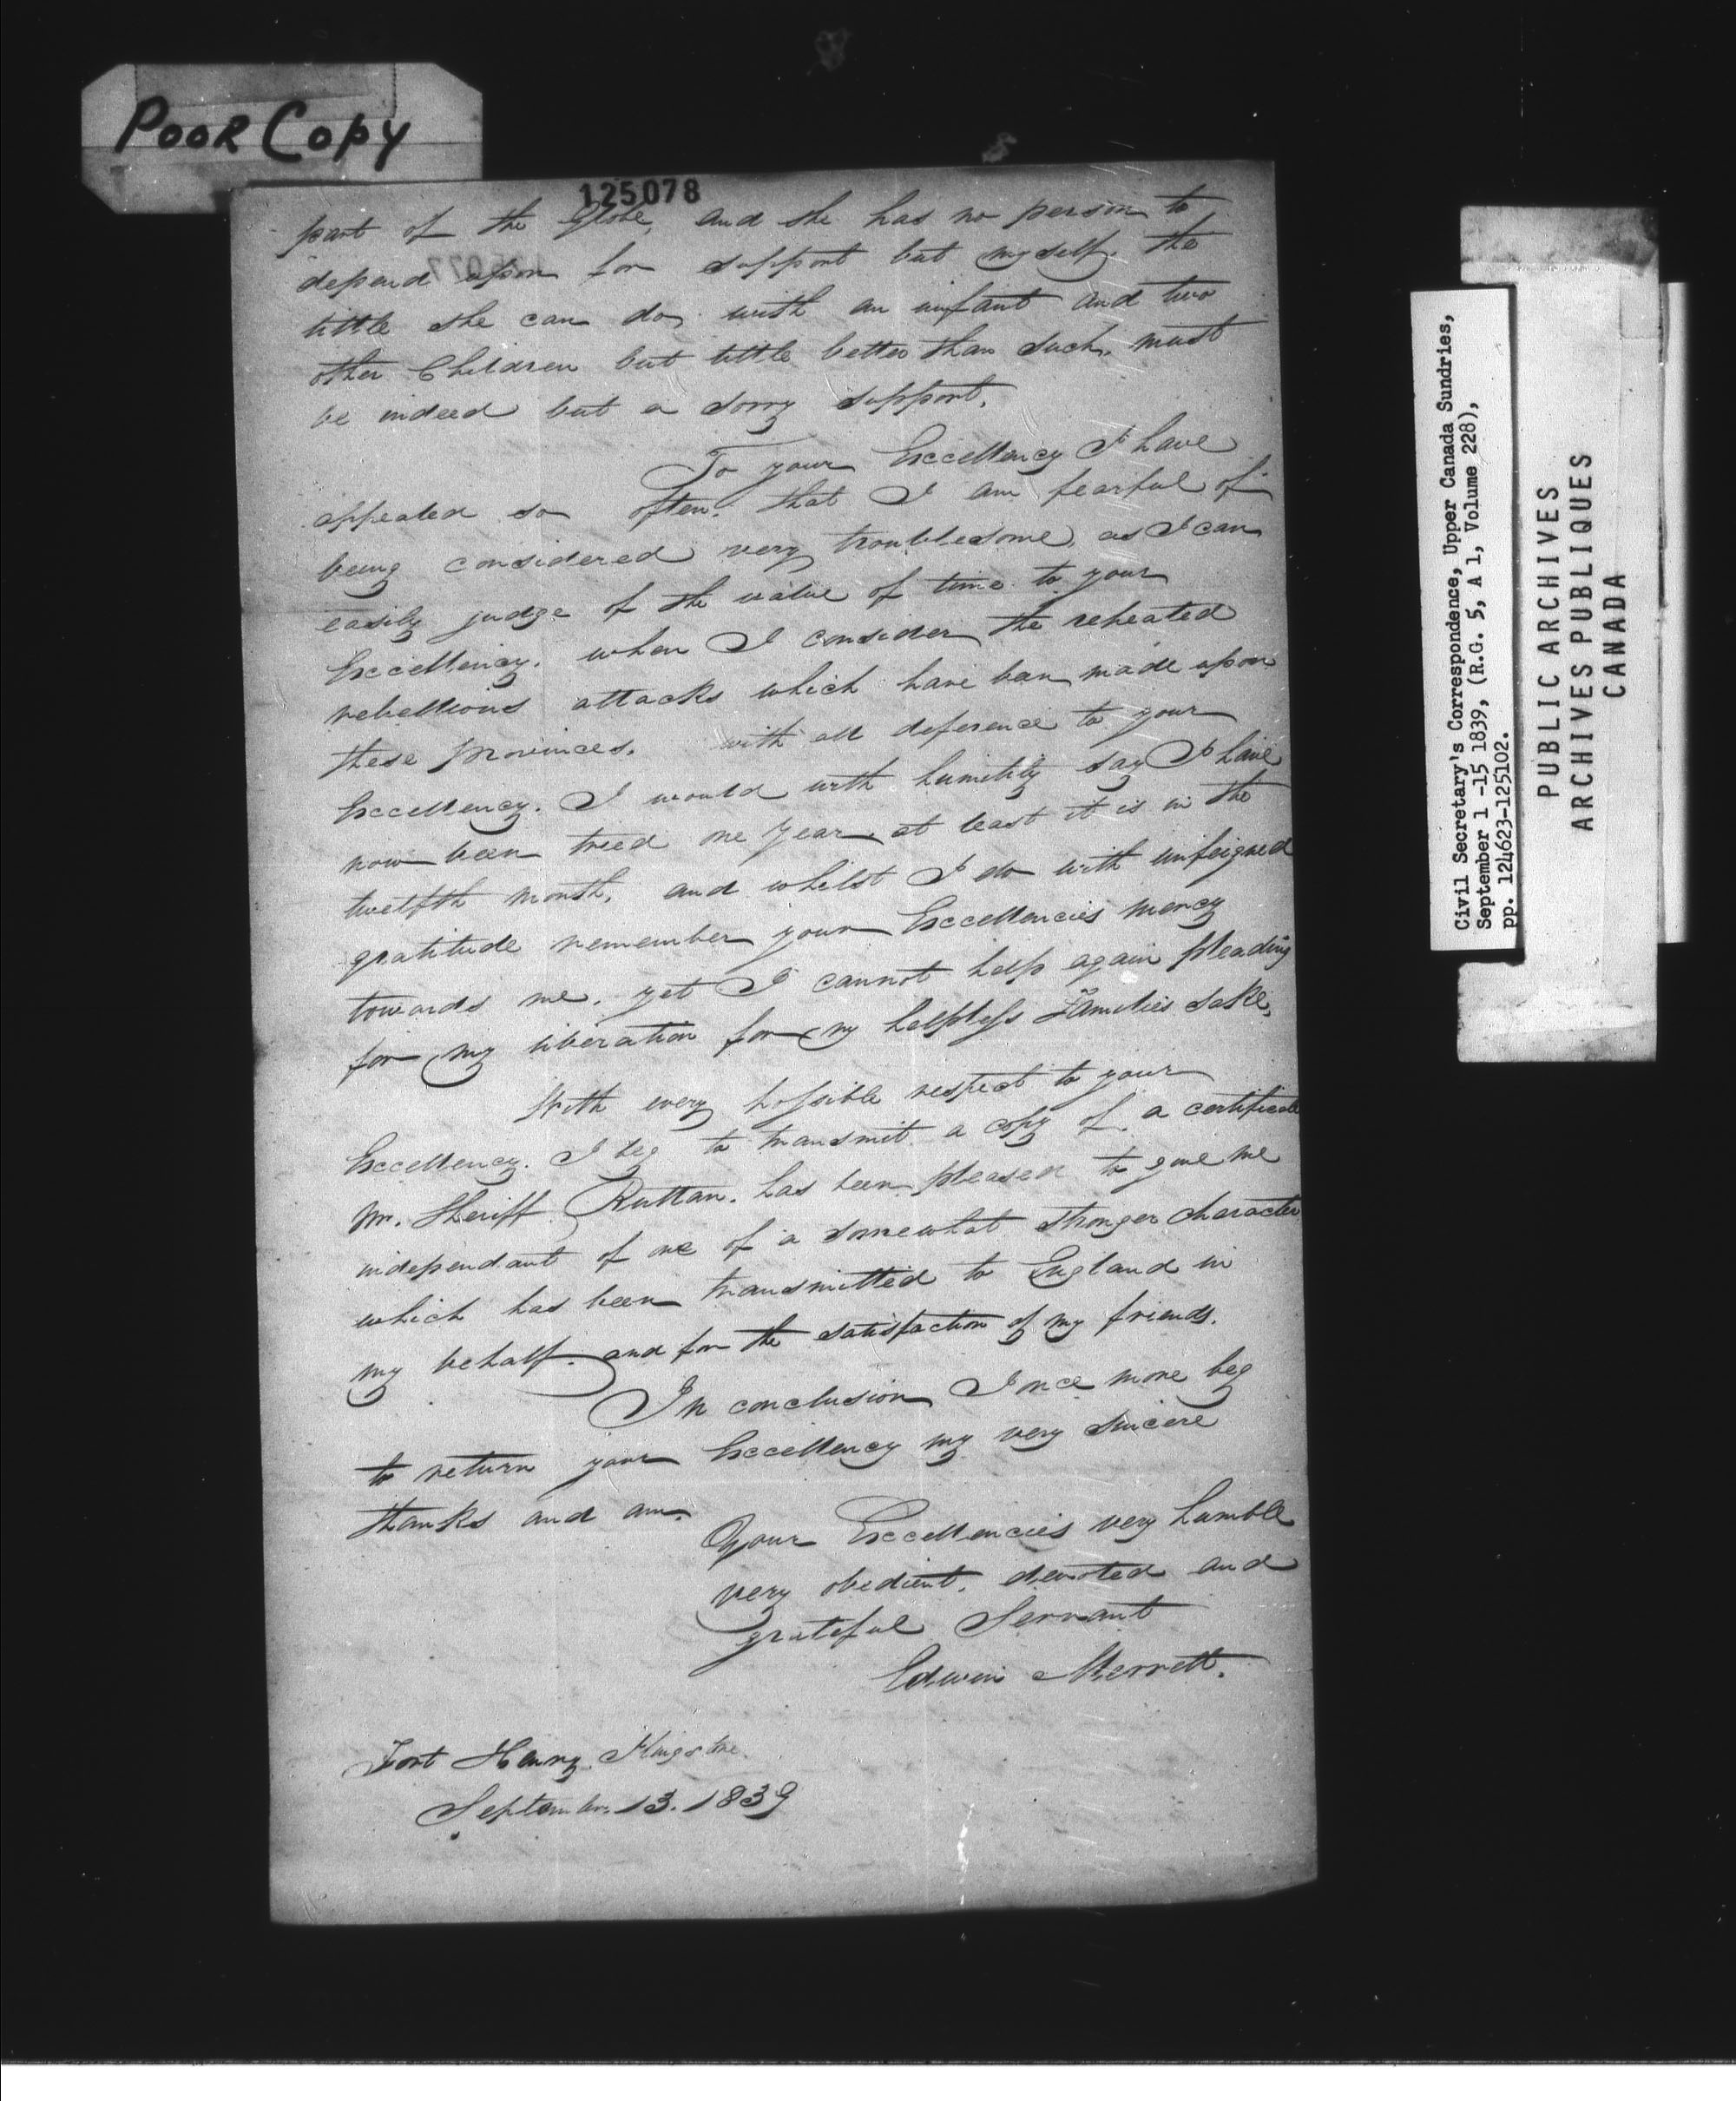 Poor Copy
125078
part of the Globe, and she has no person to
depend upon for support but myself. the
little she can do, with an infant and two
other Children but little better than such. must
be indeed but a sorry support.
To your Excellency I have
appealed so often. that I am fearful of
being considered very troublesome, as I can
easily judge of the value of time to your
Excellency. when I consider the repeated
rebellious attacks which have been made upon
these provinces. with all deference to your
Excellency. I would with humility say I have
now been tried one year. at least it is in the
twelfth month. and whilst I do with unfeigned
gratitude remember your Excellencies mercy
towards me. yet I cannot help again pleading
for my liberation for my helpless Families sake,
With every possible respect to your
Excellency. I beg to transmit a copy of a certificate
Mr. Sheriff Ruttan. has been pleased to give me
independant of one of a somewhat stronger character
which has been transmitted to England in
my behalf. and for the satisfaction of my friends.
In conclusion I once more beg
to return your Excellency my very sincere
thanks and am.
Your Excellencies very humble
very obedient. devoted and
grateful Servant
Edwin Merrett.
Fort Henry. Kingston.
September 13. 1839
Civil Secretary's Correspondence, Upper Canada Sundries,
September 1 -15 1839, (R.G. 5, A 1, Volume 228),
pp. 124623-125102.
PUBLIC ARCHIVES
ARCHIVES PUBLIQUES
CANADA